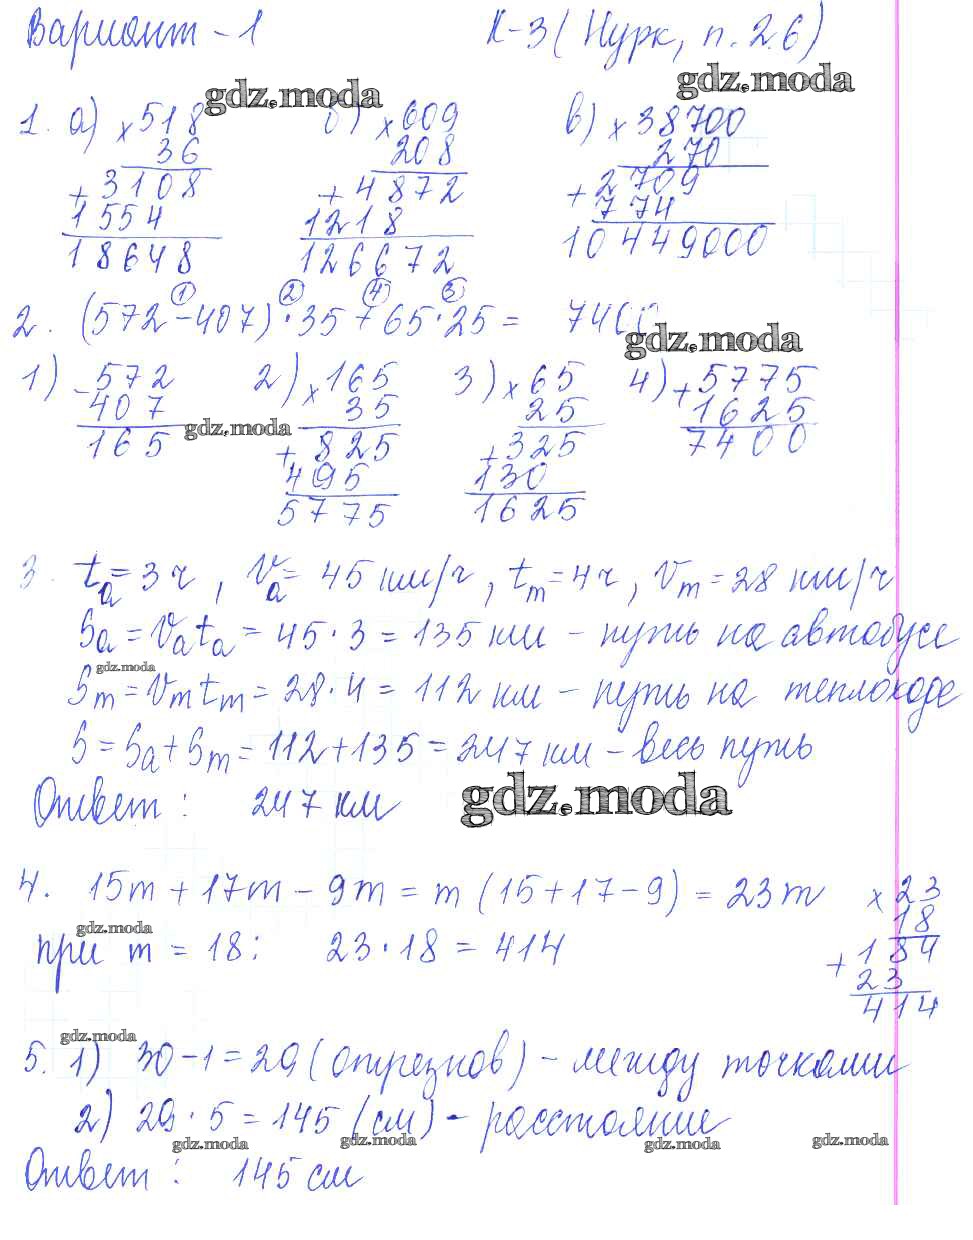 Вариант - 1 К-3 (Нурк, п. 2.6)
gdz.moda gdz.moda
1. а) × 518 б) × 609 в) × 38700
36 208 270
+ 3108 + 4872 + 2709
1554 1218 774
18648 126672 10449000
① ② ④ ③
2. (572 - 407) · 35 + 65 · 25 = 7400
gdz.moda
1) - 572 2) × 165 3) × 65 4) + 5775
407 35 25 1625
165 gdz.moda + 825 + 325 7400
495 130
5775 1625
3. tа = 3 ч, Vа = 45 км/ч, tт = 4 ч, Vт = 28 км/ч
Sа = Vа tа = 45 · 3 = 135 км - путь на автобусе
gdz.moda
Sт = Vт tт = 28 · 4 = 112 км - путь на теплоходе
S = Sа + Sт = 112 + 135 = 247 км - весь путь
Ответ: 247 км gdz.moda
4. 15m + 17m - 9m = m (15 + 17 - 9) = 23m × 23
18
gdz.moda
при m = 18: 23 · 18 = 414 + 184
23
414
gdz.moda
5. 1) 30 - 1 = 29 (отрезков) - между точками
2) 29 · 5 = 145 (см) - расстояние
gdz.moda gdz.moda gdz.moda gdz.moda
Ответ: 145 см